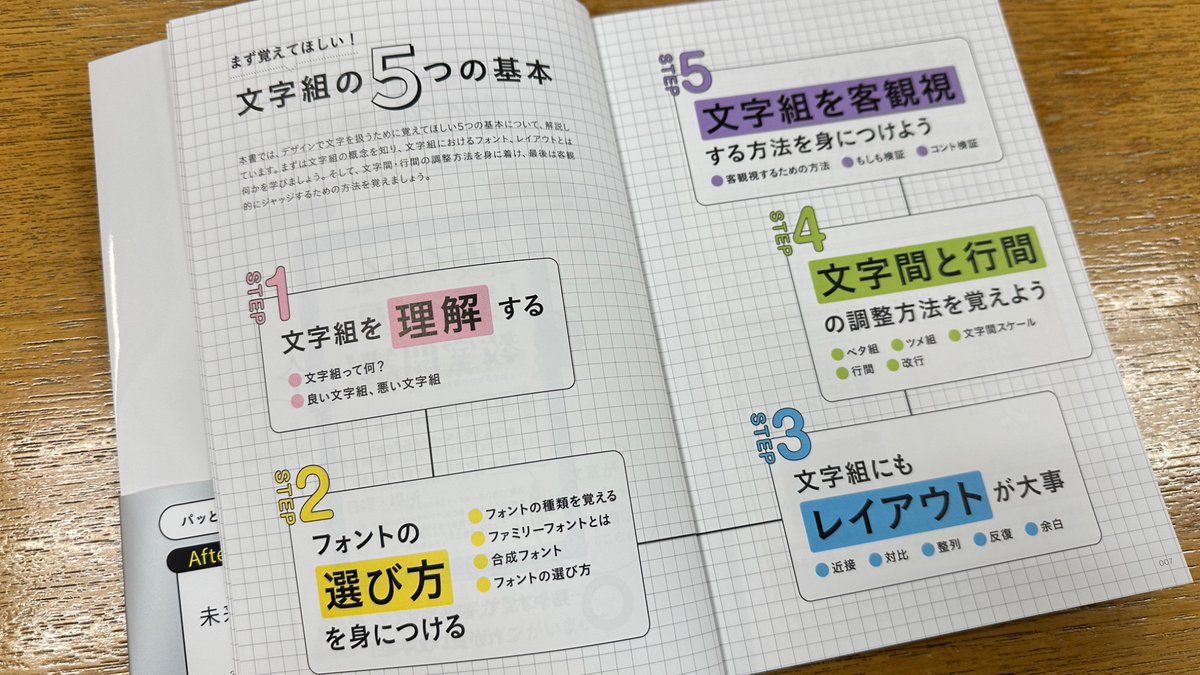 まず覚えてほしい！
文字組の5つの基本
本書では、デザインで文字を扱うために覚えてほしい5つの基本について、解説し
ています。まずは文字組の概念を知り、文字組におけるフォント、レイアウトとは
何かを学びましょう。そして、文字間・行間の調整方法を身に着け、最後は客観
的にジャッジするための方法を覚えましょう。
STEP 1
文字組を理解する
文字組って何？
良い文字組、悪い文字組
STEP 2
フォントの
選び方
を身につける
フォントの種類を覚える
ファミリーフォントとは
合成フォント
フォントの選び方
STEP 3
文字組にも
レイアウトが大事
近接 対比 整列 反復 余白
STEP 4
文字間と行間
の調整方法を覚えよう
ベタ組 ツメ組 文字間スケール
行間 改行
STEP 5
文字組を客観視
する方法を身につけよう
客観視するための方法 もしも検証 コント検証
007
パッと
Afte
未